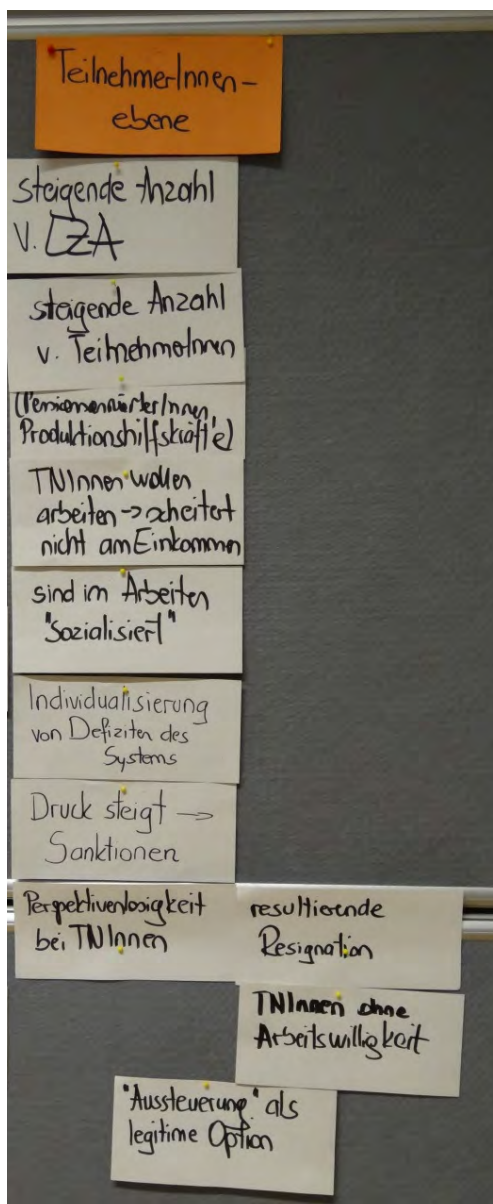 TeilnehmerInnen-
ebene
steigende Anzahl
v. LZA
steigende Anzahl
v. TeilnehmerInnen
(PensionenwerberInnen,
Produktionshilfskräfte)
TNInnen wollen
arbeiten -> scheitert
nicht am Einkommen
sind im Arbeiten
"Sozialisiert"
Individualisierung
von Defiziten des
Systems
Druck steigt ->
Sanktionen
Perspektivenlosigkeit
bei TNInnen
resultierende
Resignation
TNInnen ohne
Arbeitswilligkeit
"Aussteuerung" als
legitime Option